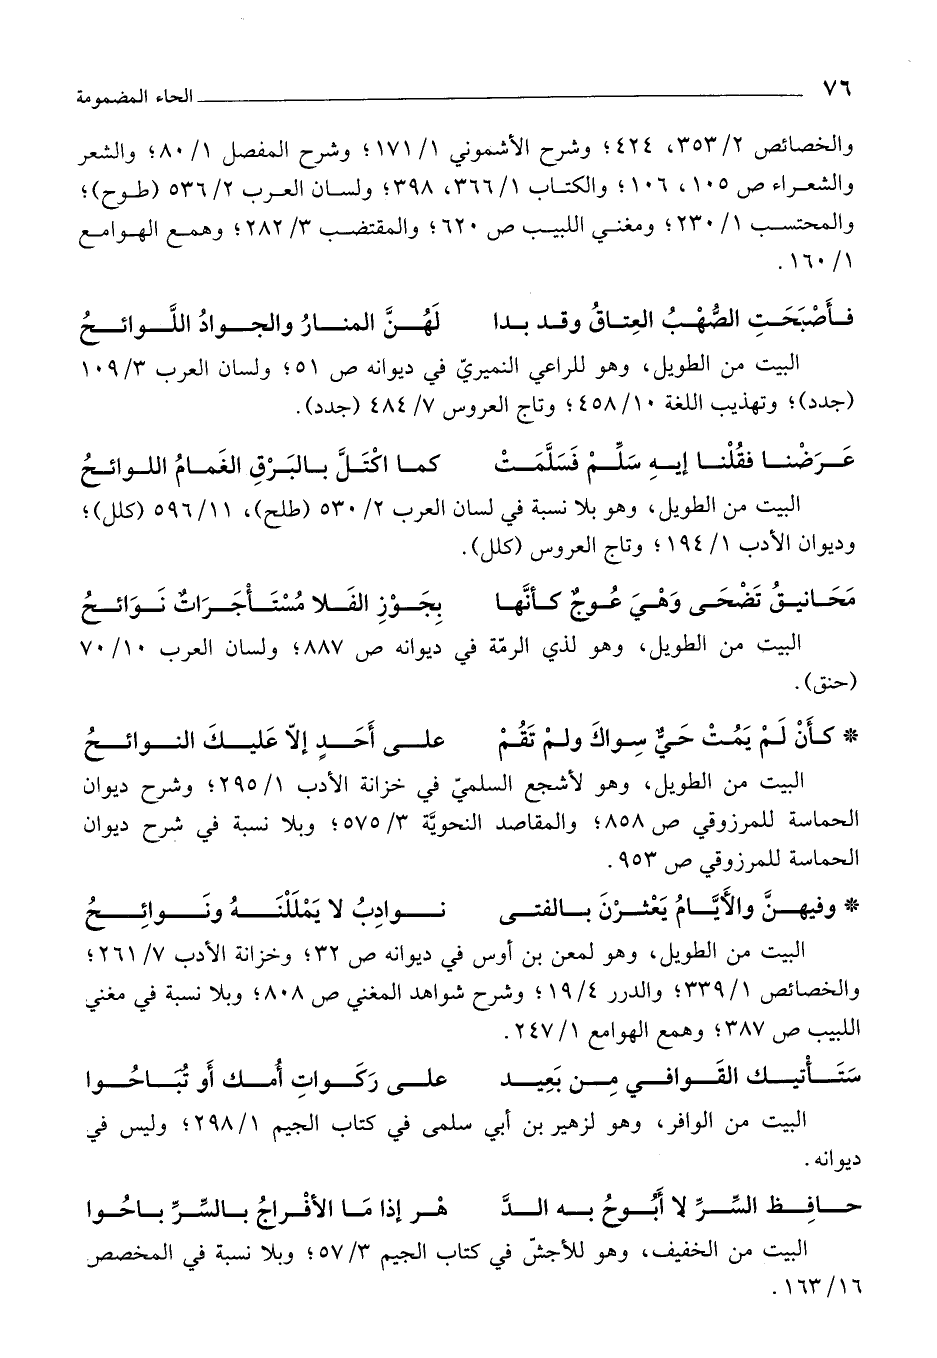 ٧٦ الحاء المضمومة
والخصائص ٢/ ٣٥٣، ٤٢٤؛ وشرح الأشموني ١/ ١٧١؛ وشرح المفصل ١/ ٨٠؛ والشعر
والشعراء ص ١٠٥، ١٠٦؛ والكتاب ١/ ٣٦٦، ٣٩٨؛ ولسان العرب ٢/ ٥٣٦ (طوح)؛
والمحتسب ١/ ٢٣٠؛ ومغني اللبيب ص ٦٢٠؛ والمقتضب ٣/ ٢٨٢؛ وهمع الهوامع
١/ ١٦٠.
فأَصْبَحَتِ الصُّهْبُ العِتاقُ وقد بدا لَهُنَّ المنارُ والجوادُ اللَّوائحُ
البيت من الطويل، وهو للراعي النميريّ في ديوانه ص ٥١؛ ولسان العرب ٣/ ١٠٩
(جدد)؛ وتهذيب اللغة ١٠/ ٤٥٨؛ وتاج العروس ٧/ ٤٨٤ (جدد).
عَرَضْنا فقُلْنا إيهِ سَلِّمْ فَسَلَّمَتْ كما اكْتَلَّ بالبَرْقِ الغَمامُ اللوائحُ
البيت من الطويل، وهو بلا نسبة في لسان العرب ٢/ ٥٣٠ (طلح)، ١١/ ٥٩٦ (كلل)؛
وديوان الأدب ١/ ١٩٤؛ وتاج العروس (كلل).
مَحَانيقُ تَضْحَى وَهْيَ عُوجٌ كأنَّها بِجَوْزِ الفَلا مُسْتَأْجَرَاتٌ نَوَائحُ
البيت من الطويل، وهو لذي الرمّة في ديوانه ص ٨٨٧؛ ولسان العرب ١٠/ ٧٠
(حنق).
* كأَنْ لَمْ يَمُتْ حَيٌّ سِواكَ ولمْ تَقُمْ على أَحَدٍ إلاّ عَليكَ النوائحُ
البيت من الطويل، وهو لأشجع السلميّ في خزانة الأدب ١/ ٢٩٥؛ وشرح ديوان
الحماسة للمرزوقي ص ٨٥٨؛ والمقاصد النحويَّة ٣/ ٥٧٥؛ وبلا نسبة في شرح ديوان
الحماسة للمرزوقي ص ٩٥٣.
* وفيهنَّ والأَيَّامُ يَعْثرْنَ بالفتى نوادِبُ لا يَمْلَلْنَهُ ونَوائِحُ
البيت من الطويل، وهو لمعن بن أوس في ديوانه ص ٣٢؛ وخزانة الأدب ٧/ ٢٦١؛
والخصائص ١/ ٣٣٩؛ والدرر ٤/ ١٩؛ وشرح شواهد المغني ص ٨٠٨؛ وبلا نسبة في مغني
اللبيب ص ٣٨٧؛ وهمع الهوامع ١/ ٢٤٧.
سَتَأْتيك القَوافي مِن بَعِيد على رَكَواتِ أُمك أو تُبَاحُوا
البيت من الوافر، وهو لزهير بن أبي سلمى في كتاب الجيم ١/ ٢٩٨؛ وليس في
ديوانه.
حافِظ السِّرِّ لا أَبُوحُ به الدَّ هْر إذا مَا الأفْراجُ بالسِّرِّ باحُوا
البيت من الخفيف، وهو للأجشّ في كتاب الجيم ٣/ ٥٧؛ وبلا نسبة في المخصص
١٦/ ١٦٣.